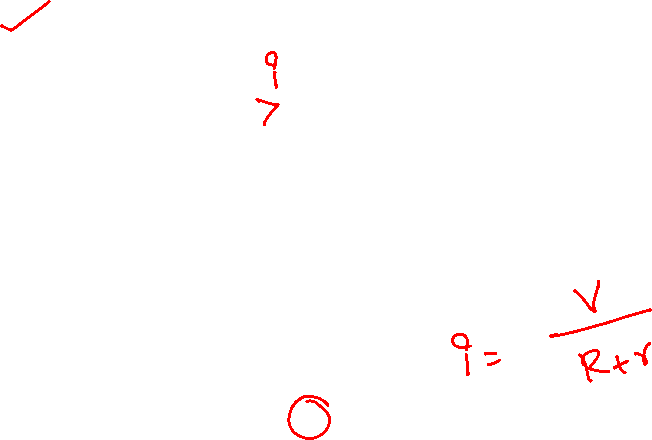 i
>
i = V / R+r